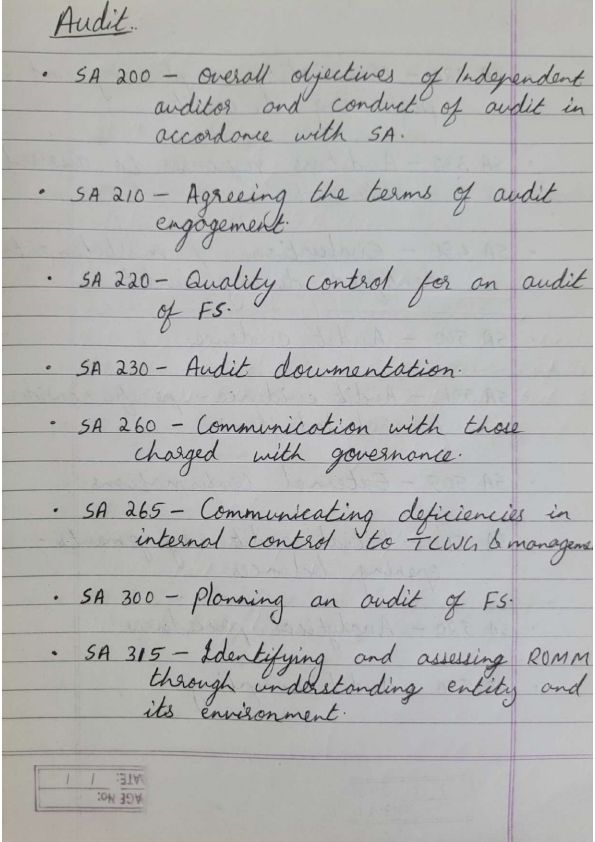 Audit.
• SA 200 – Overall objectives of Independent
auditor and conduct of audit in
accordance with SA.
• SA 210 – Agreeing the terms of audit
engagement.
• SA 220 – Quality control for an audit
of FS.
• SA 230 – Audit documentation.
• SA 260 – Communication with those
charged with governance.
• SA 265 – Communicating deficiencies in
internal control to TCWG & managem
• SA 300 – Planning an audit of FS.
• SA 315 – Identifying and assessing ROMM
through understanding entity and
its environment.
AGE No:
ATE: / /